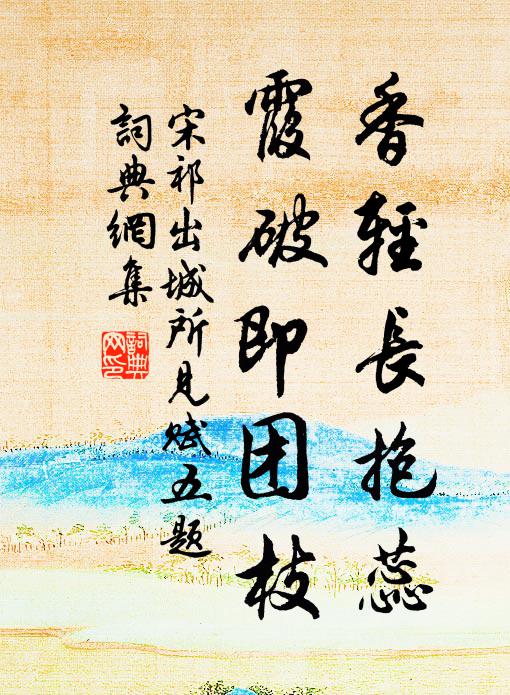 香輕長抱蕊
霞破即团枝
宋祁出城所見賦五题
詞典網集
詞典
网印